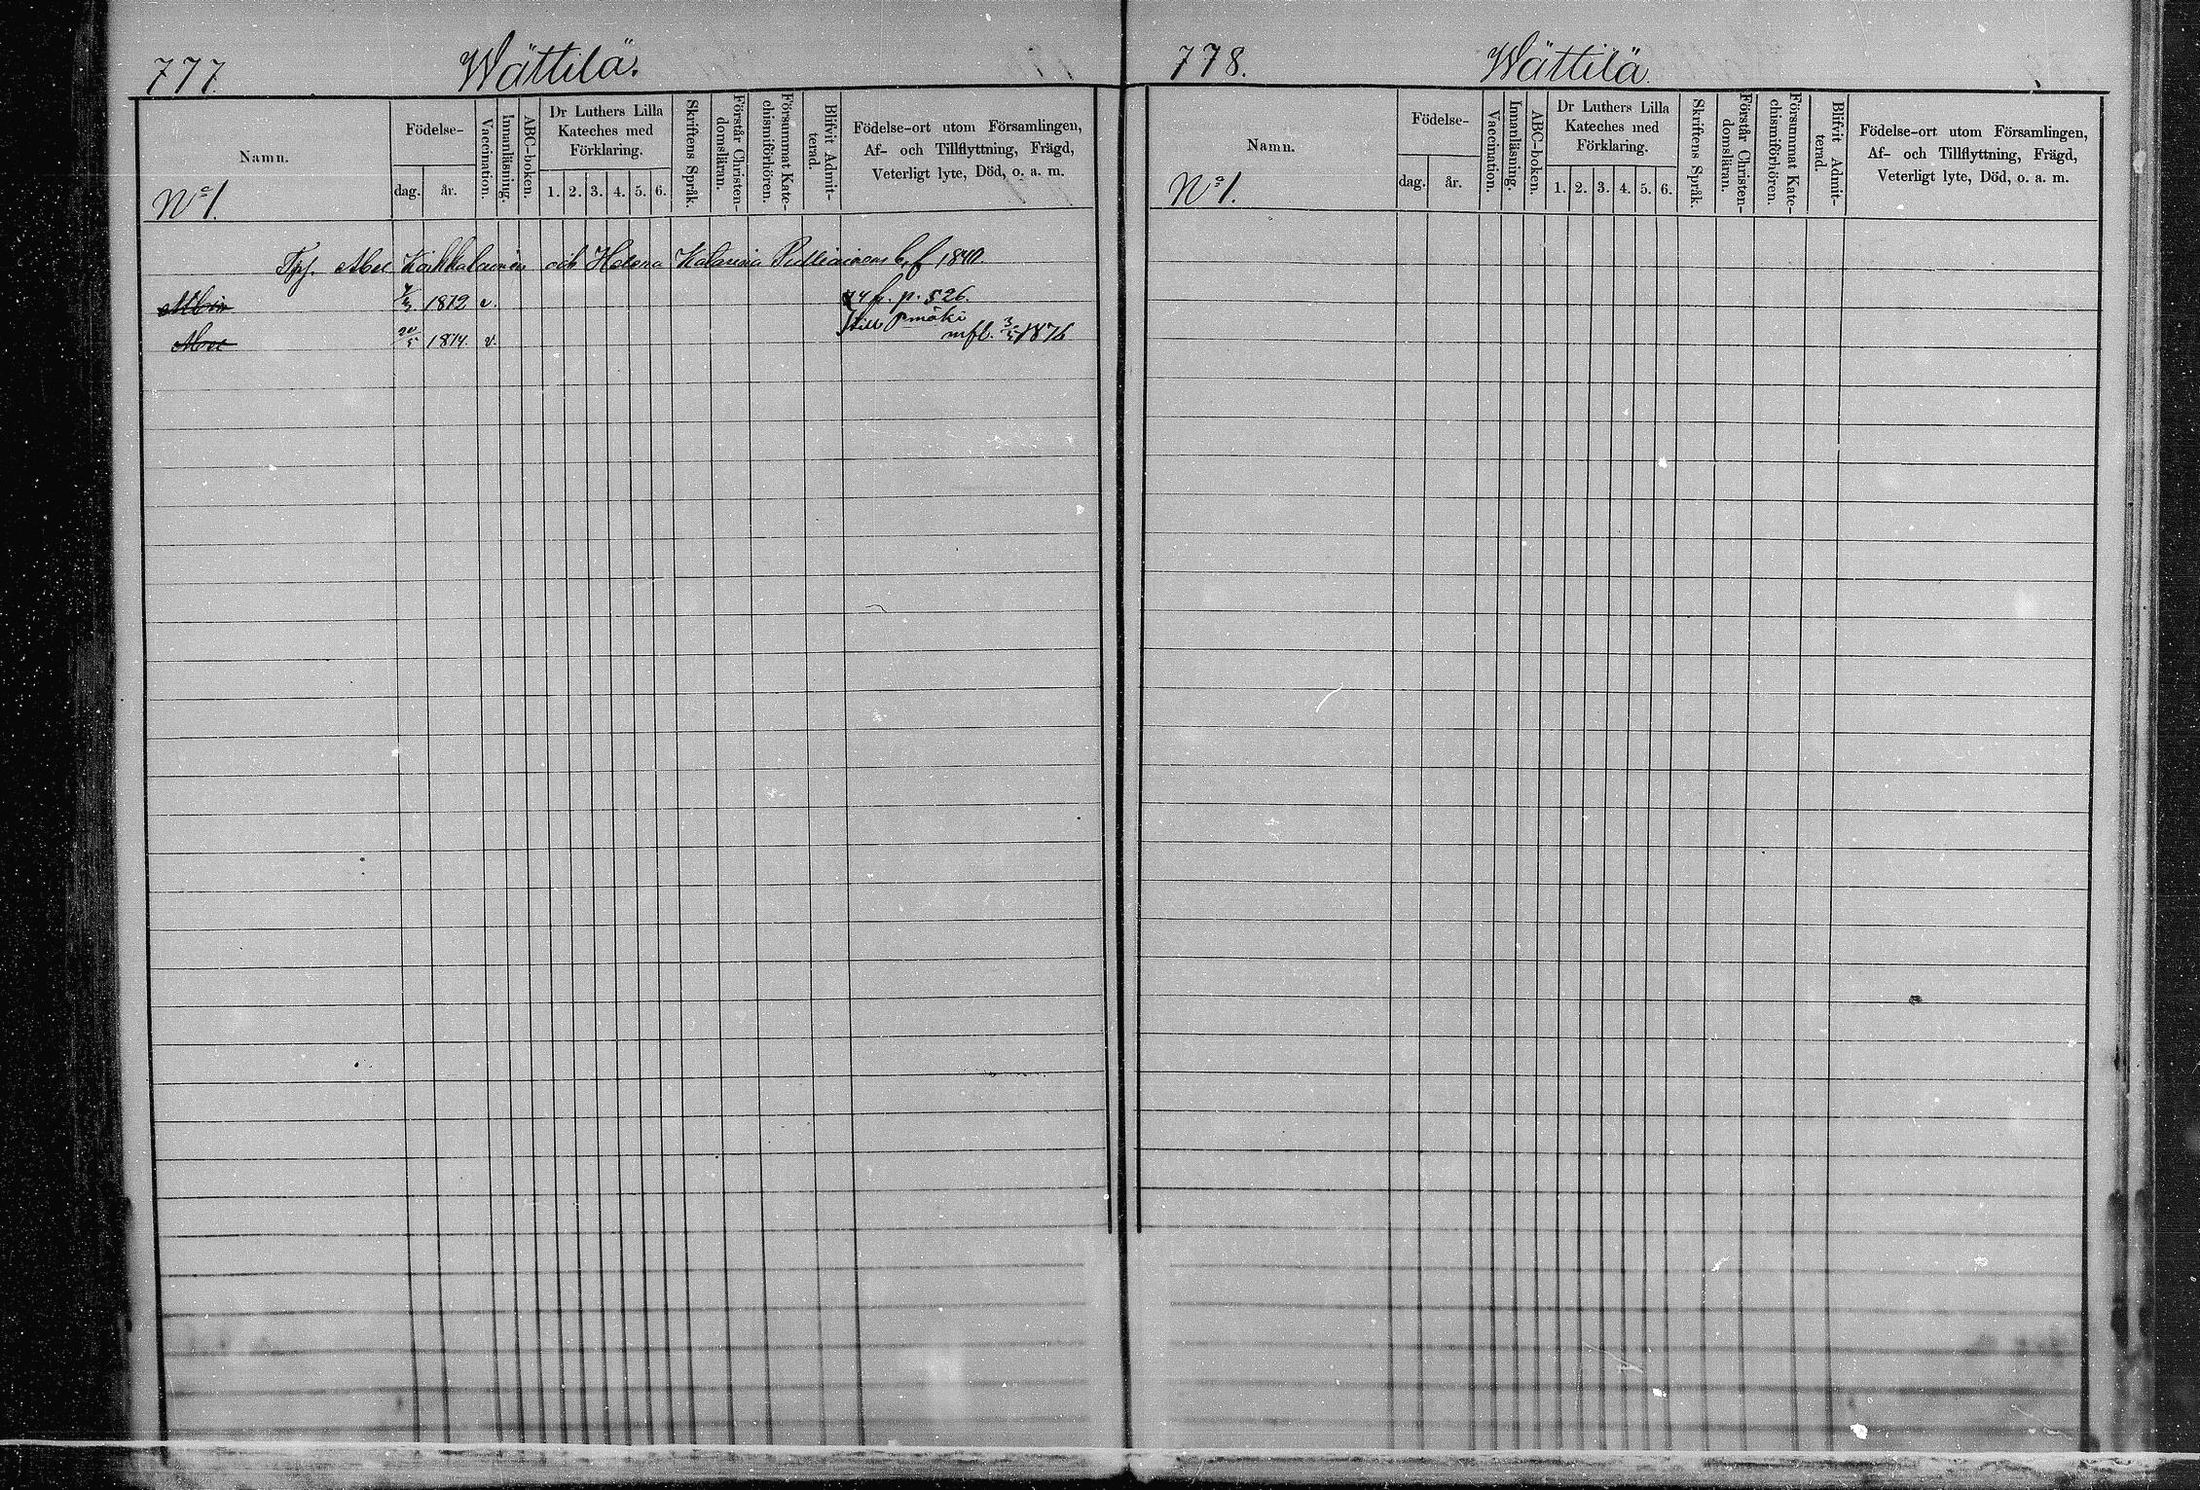 777.
Wättilä.
Namn.
Födelse-
dag.
år.
Vaccination.
Innanläsning.
ABC-boken.
Dr Luthers Lilla
Kateches med
Förklaring.
1. 2. 3. 4. 5. 6.
Skriftens Språk.
Förstår Christen-
domsläran.
Försummat Kate-
chismiförhören.
Blifvit Admit-
terad.
Födelse-ort utom Församlingen,
Af- och Tillflyttning, Frägd,
Veterligt lyte, Död, o. a. m.
No 1.
Abel och Helena 1840.
1872 v. p. 526.
till
20/5 1874. v. mfl. 1876
778.
Wättilä.
Namn.
Födelse-
dag.
år.
Vaccination.
Innanläsning.
ABC-boken.
Dr Luthers Lilla
Kateches med
Förklaring.
1. 2. 3. 4. 5. 6.
Skriftens Språk.
Förstår Christen-
domsläran.
Försummat Kate-
chismiförhören.
Blifvit Admit-
terad.
Födelse-ort utom Församlingen,
Af- och Tillflyttning, Frägd,
Veterligt lyte, Död, o. a. m.
No 1.